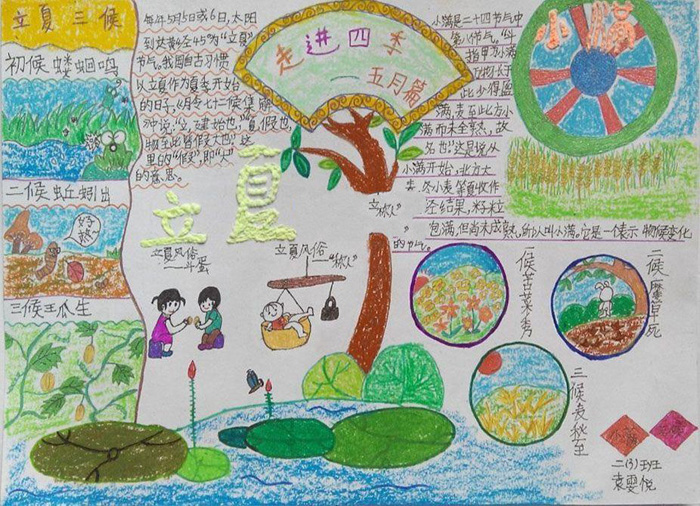 立夏三候
初候蝼蝈鸣
二候蚯蚓出
好热
三候王瓜生
每年5月5日或6日,太阳
到达黄经45°为"立夏"
节气。我国自古习惯
以立夏作为夏季开始
的日子,《月令七十二候集解》
中说:"立,建始也,""夏,假也,
物至此皆假大也。"这
里的"假",即"大"
的意思。
立夏
走进四季
五月篇
立夏风俗
斗蛋
立夏风俗
"秤人"
小满是二十四节气中
第八节气。"斗
指甲为小满
万物长于
此少得盈
满,麦至此方小
满而未全熟,故
名也"这是说从
小满开始,北方大
麦、冬小麦等夏收作
经结果,籽粒
包满,但尚未成熟,所以叫小满。它是一个表示物候变化
的节气。
小满
候苦菜秀
二候靡草死
三候麦秋至
小满
二(3)班
袁雯悦